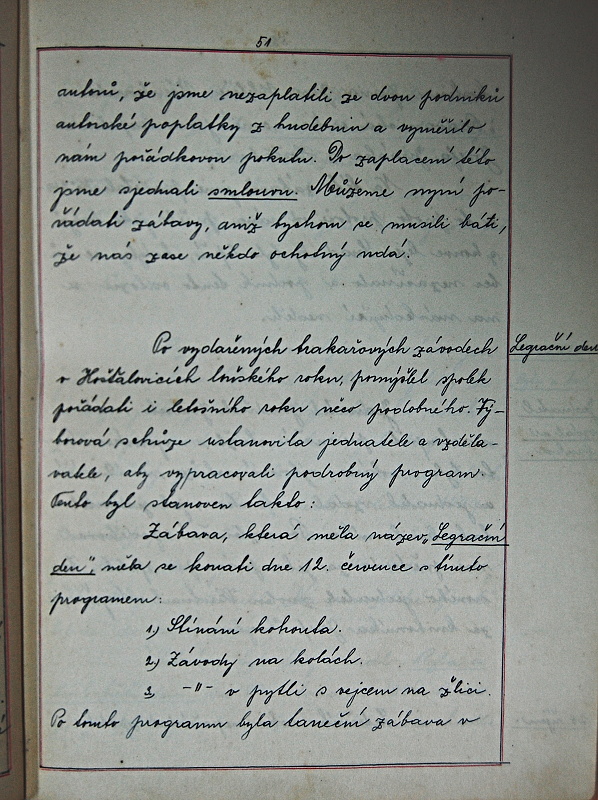 51
autorů, že jsme nezaplatili ze dvou podniků
autorské poplatky z hudebnin a vyměřilo
nám pořádkovou pokutu. Po zaplacení této
jsme sjednali smlouvu. Můžeme nyní po-
řádati zábavy, aniž bychom se musili báti,
že nás zase někdo ochotný udá.
Po vydařených trakařových závodech
Legrační den
v Hošťalovicích loňského roku, pomýšlel spolek
pořádati i letošního roku něco podobného. Vý-
borová schůze ustanovila jednatele a vzděla-
vatele, aby vypracovali podrobný program.
Tento byl stanoven takto:
Zábava, která měla název „Legrační
den", měla se konati dne 12. července s tímto
programem:
1) Stínání kohouta.
2) Závody na kolách.
3, -"- v pytli s vejcem na žlici.
Po tomto programu byla taneční zábava v